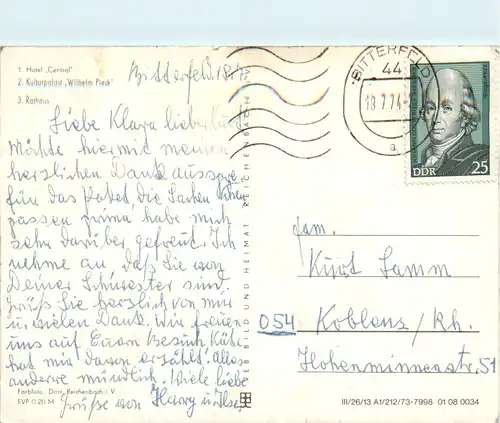 1. Hotel „Central"
2. Kulturpalast „Wilhelm Pieck"
3. Rathaus
Bitterfeld 18.7.
Liebe Klara lieber Kurt
Möchte hiermit meinen
herzlichen Dank ausspre.
für das Paket die Sachen
passen prima habe mich
sehr darüber gefreut. Ich
nehme an, daß Sie von
Deiner Schwester sind.
Grüß Sie herzlich von mir
u. vielen Dank. Wir freuen
uns auf Euern Besuch Käte
hat mir davon erzählt. Alles
andere mündlich. Viele liebe
Grüße von Harry u. Ilse
Farbfoto: Darr, Reichenbach i. V.
EVP 0.20 M
BILD UND HEIMAT REICHENBACH
BITTERFELD
44
18.7.74
a
DDR 25
Fam.
Kurt Lamm
054 Koblenz/Rh.
Hohenminnerstr. 51
III/26/13 A1/212/73-7998 01 08 0034